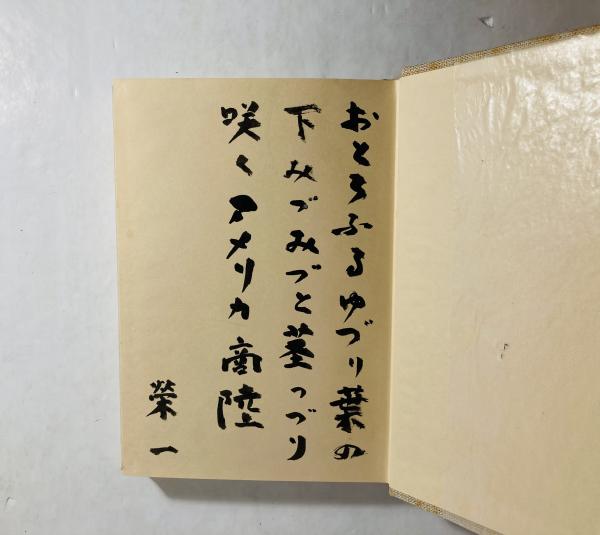 おとろふるゆづり葉の
下みづみづと茎つづり
咲くアメリカ商陸
榮一